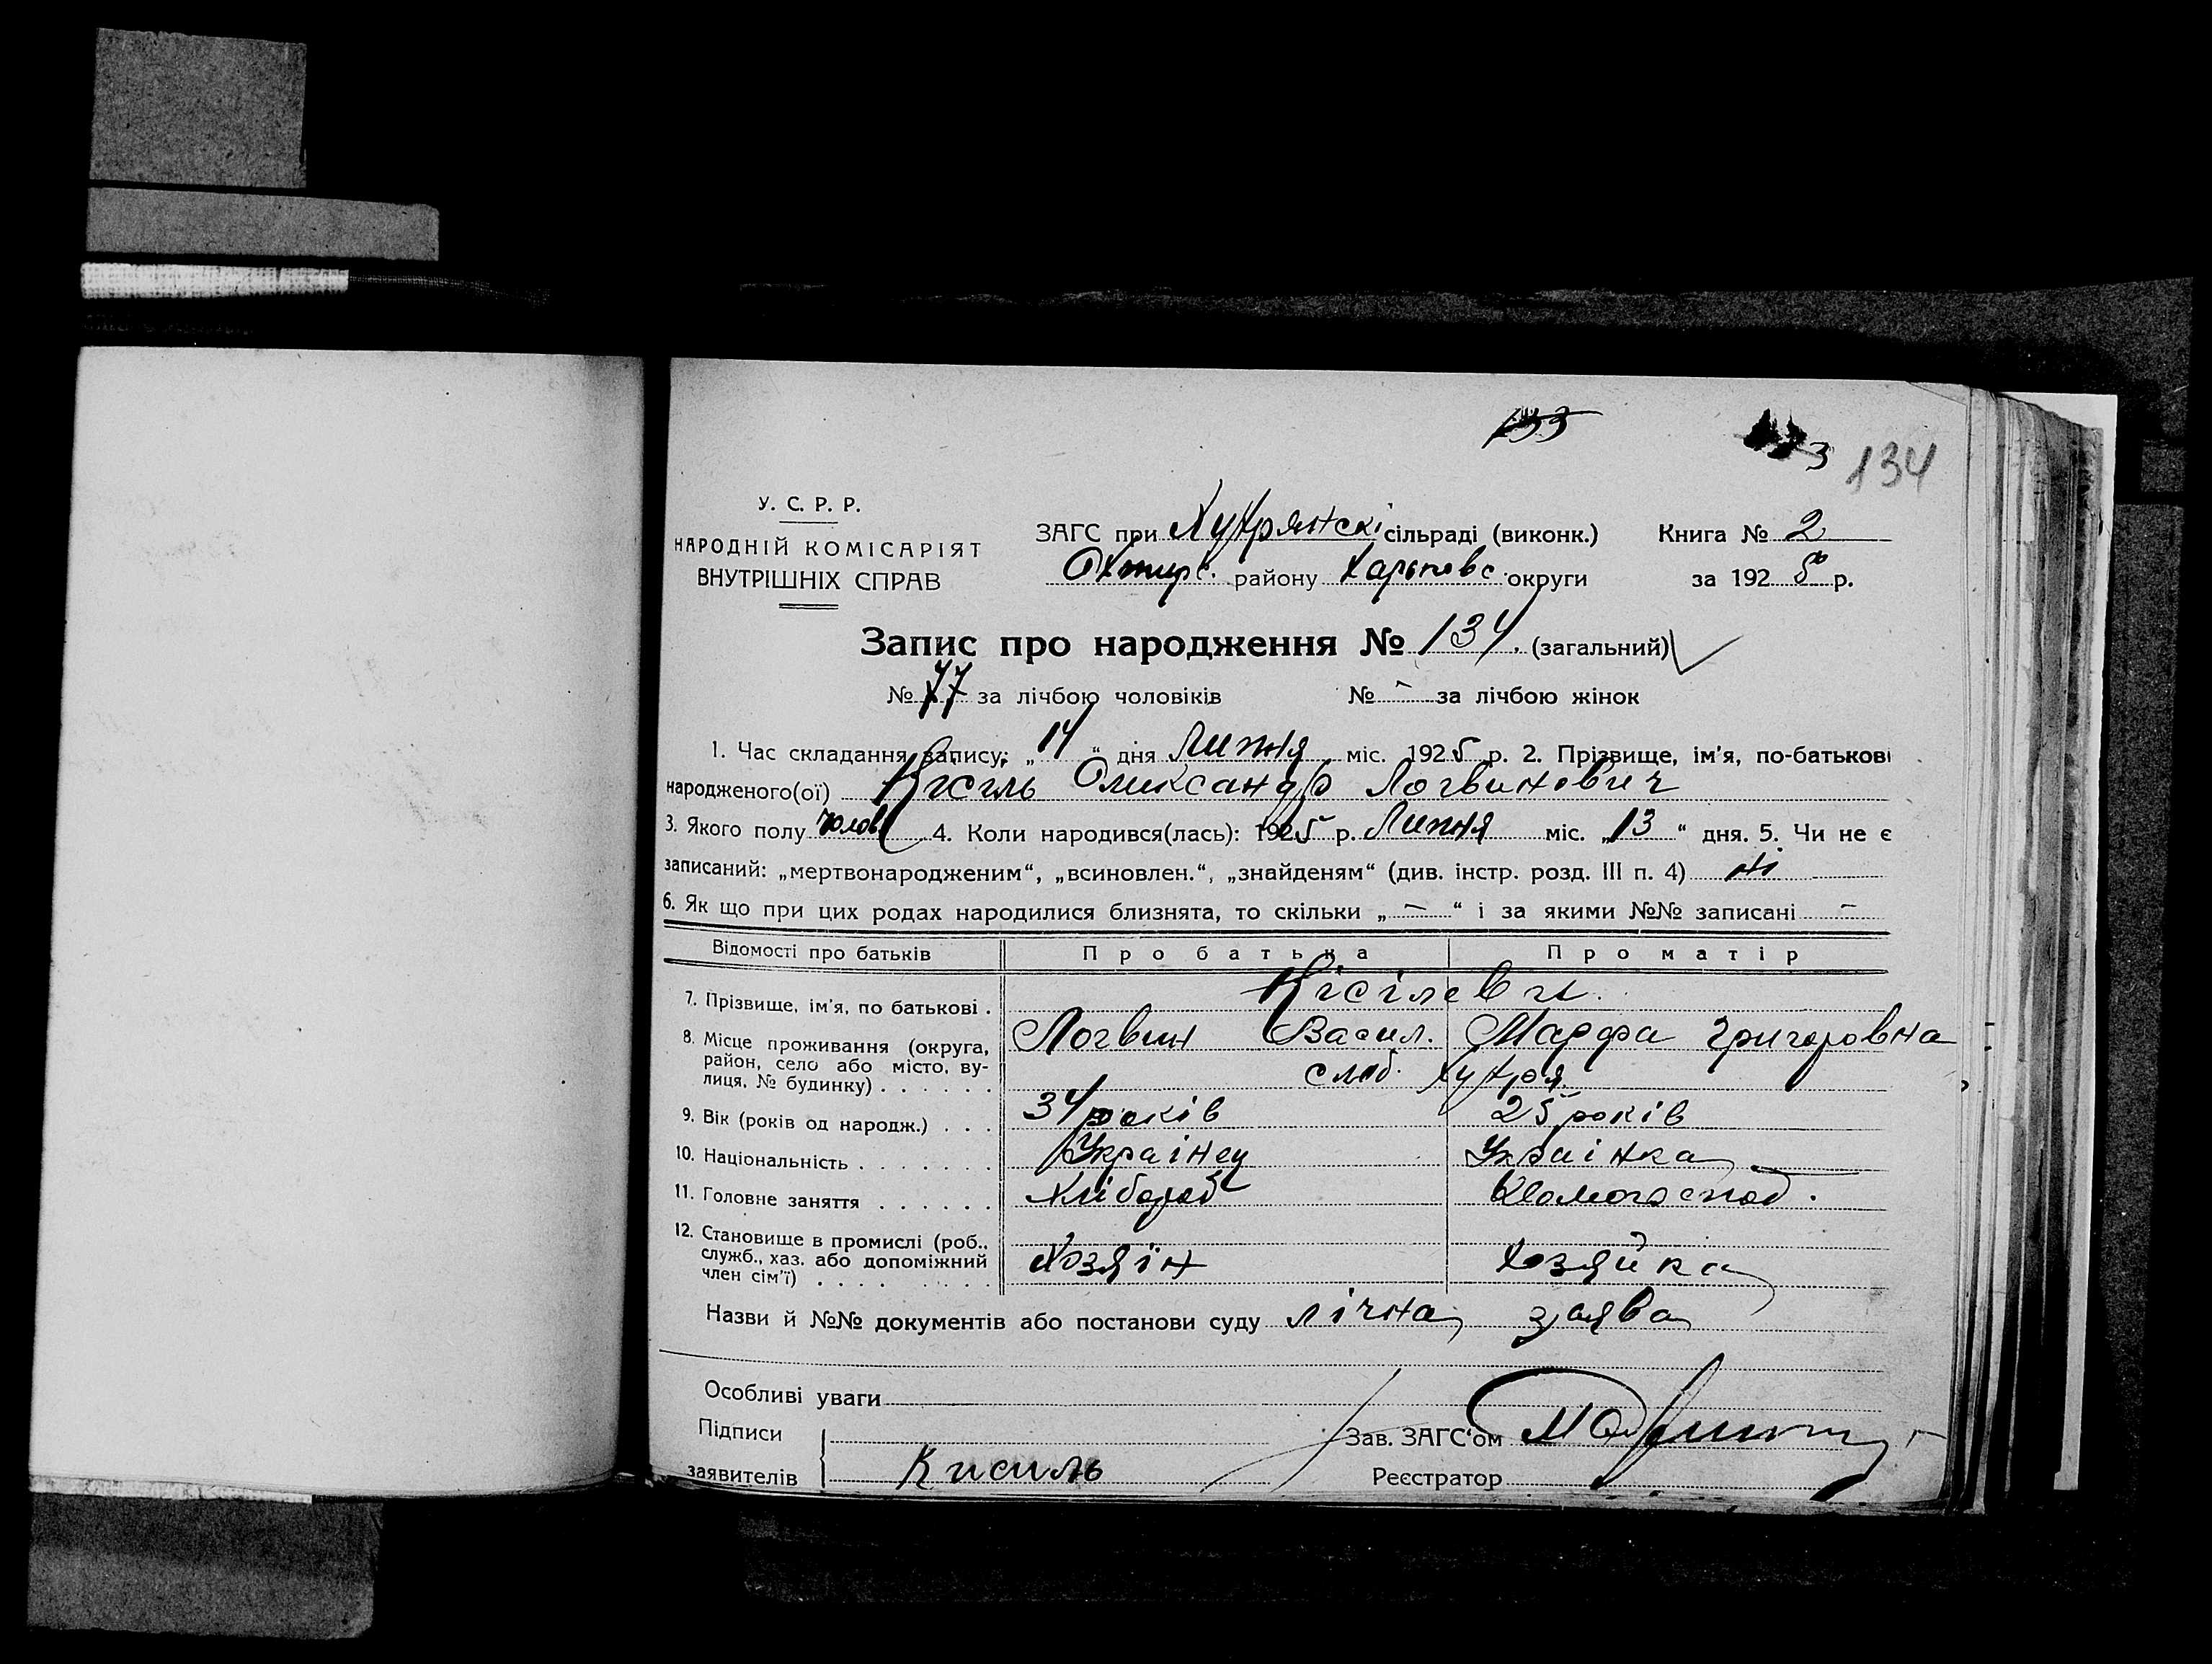 133
134
У. С. Р. Р.
НАРОДНІЙ КОМІСАРІЯТ
ВНУТРІШНІХ СПРАВ
ЗАГС при Хухрянскі сільраді (виконк.) Книга № 2
Охтирс. району Харьковс. округи за 1925 р.
Запис про народження № 134. (загальний)
№ 77 за лічбою чоловіків № – за лічбою жінок
1. Час складання запису: „14“ дня Липня міс. 1925 р. 2. Прізвище, ім'я, по-батькові
народженого(ої) Кісіль Олександр Логвинович
3. Якого полу чолов 4. Коли народився(лась): 1925 р. Липня міс. „13“ дня. 5. Чи не є
записаний: „мертвонародженим“, „всиновлен.“, „знайденям“ (див. інстр. розд. III п. 4) ні
6. Як що при цих родах народилися близнята, то скільки „–“ і за якими №№ записані –
Відомості про батьків Про батька Про матір
7. Прізвище, ім'я, по батькові . Кісілеви.
8. Місце проживання (округа, район, село або місто, вулиця, № будинку) . . . . . . Логвин Васил. Марфа Григоровна
слоб. Хухря
9. Вік (років од народж.) . . . 34 років 25 років
10. Національність . . . . . . . Українец Українка
11. Головне заняття . . . . . . Хлібороб Домогоспод.
12. Становище в промислі (роб., служб., хаз. або допоміжний член сім'ї) . . . . . . . . . Хозяїн Хозяйка
Назви й №№ документів або постанови суду лічна заява
Особливі уваги
Підписи
заявителів Кисиль
Зав. ЗАГС'ом
Реєстратор